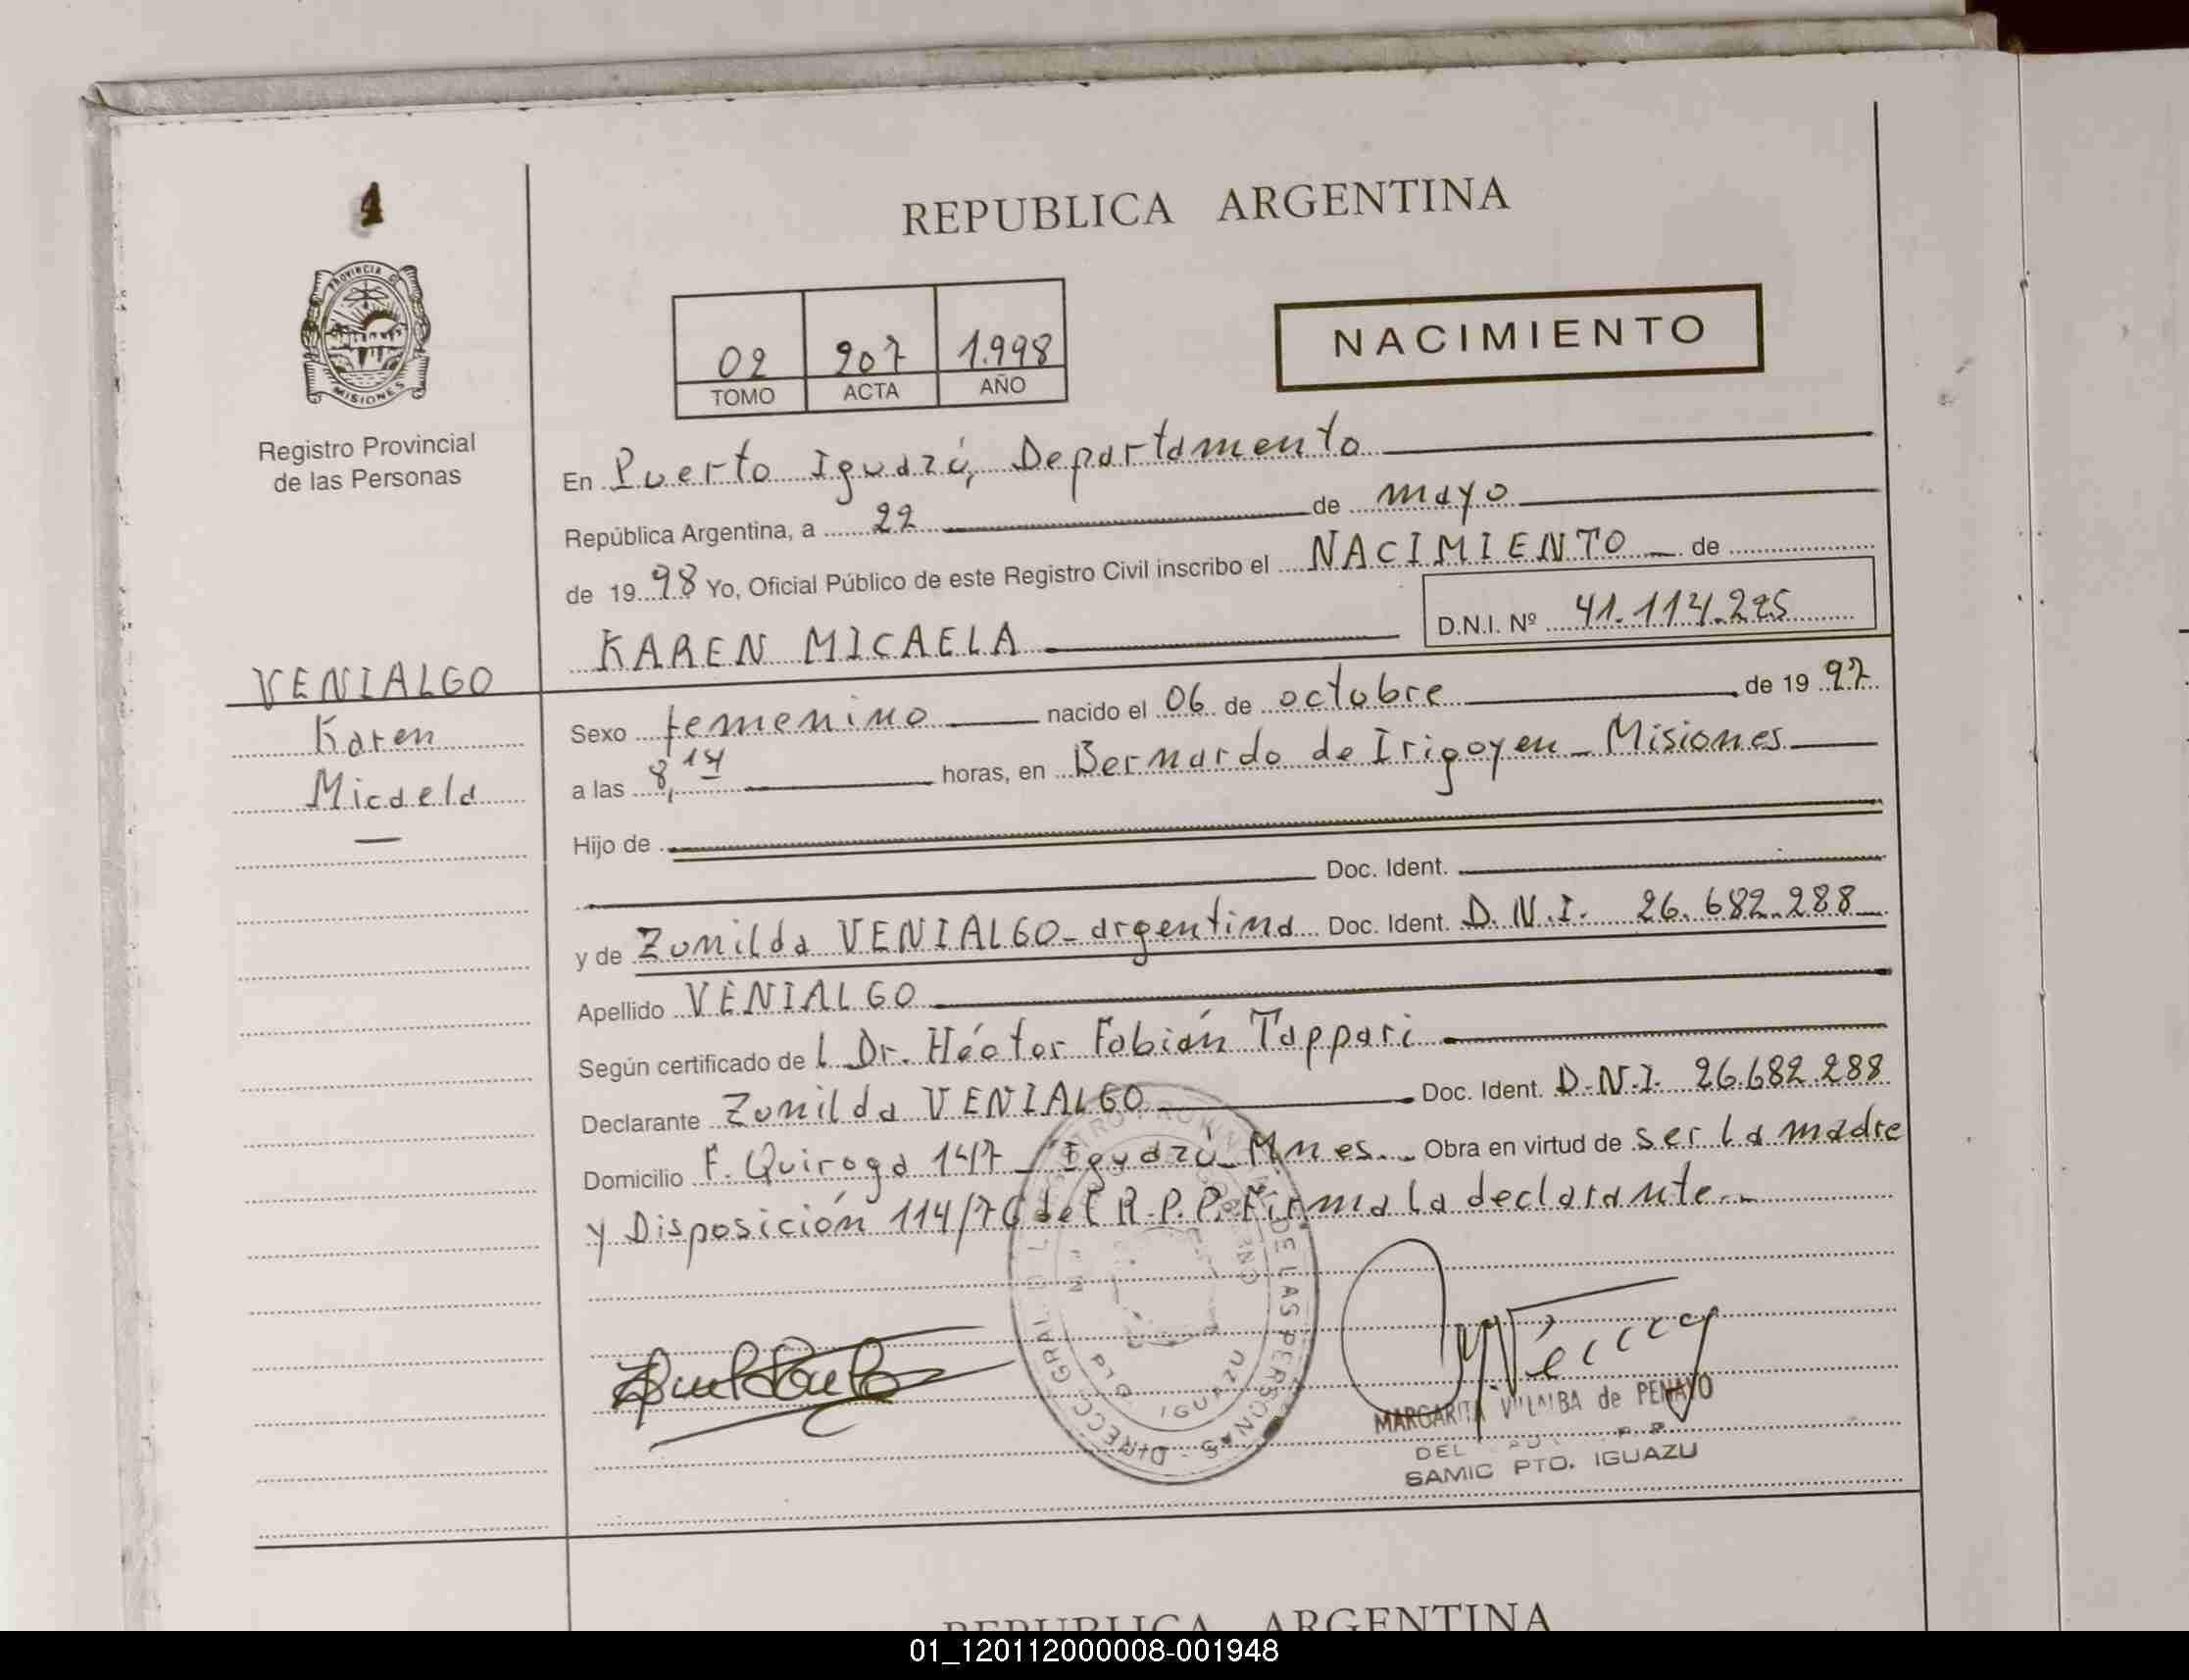 REPUBLICA ARGENTINA
PROVINCIA D
MISIONES
Registro Provincial
de las Personas
02 207 1.998
TOMO ACTA AÑO
NACIMIENTO
En Puerto Iguazú, Departamento
República Argentina, a 22 de mayo
de 1998 Yo, Oficial Público de este Registro Civil inscribo el NACIMIENTO de
KAREN MICAELA D.N.I. Nº 41.114.225
VENIALGO
Karen
Micaela
Sexo femenino nacido el 06 de octubre de 1997
a las 8,14 horas, en Bernardo de Irigoyen - Misiones
Hijo de
Doc. Ident.
y de Zunilda VENIALGO - argentina Doc. Ident. D.N.I. 26.682.288
Apellido VENIALGO
Según certificado de l Dr. Héctor Fabián Tappari
Declarante Zunilda VENIALGO Doc. Ident. D.N.I. 26.682.288
Domicilio F. Quiroga 147 - Iguazú - Mnes. - Obra en virtud de ser la madre
y Disposición 114/76 del R.P.P. Firma la declarante.-
DIRECC GRAL DE LAS PERSONAS
IGUAZU
MARGARITA de PENAYO
DEL
SAMIC PTO. IGUAZU
REPUBLICA ARGENTINA
01_120112000008-001948